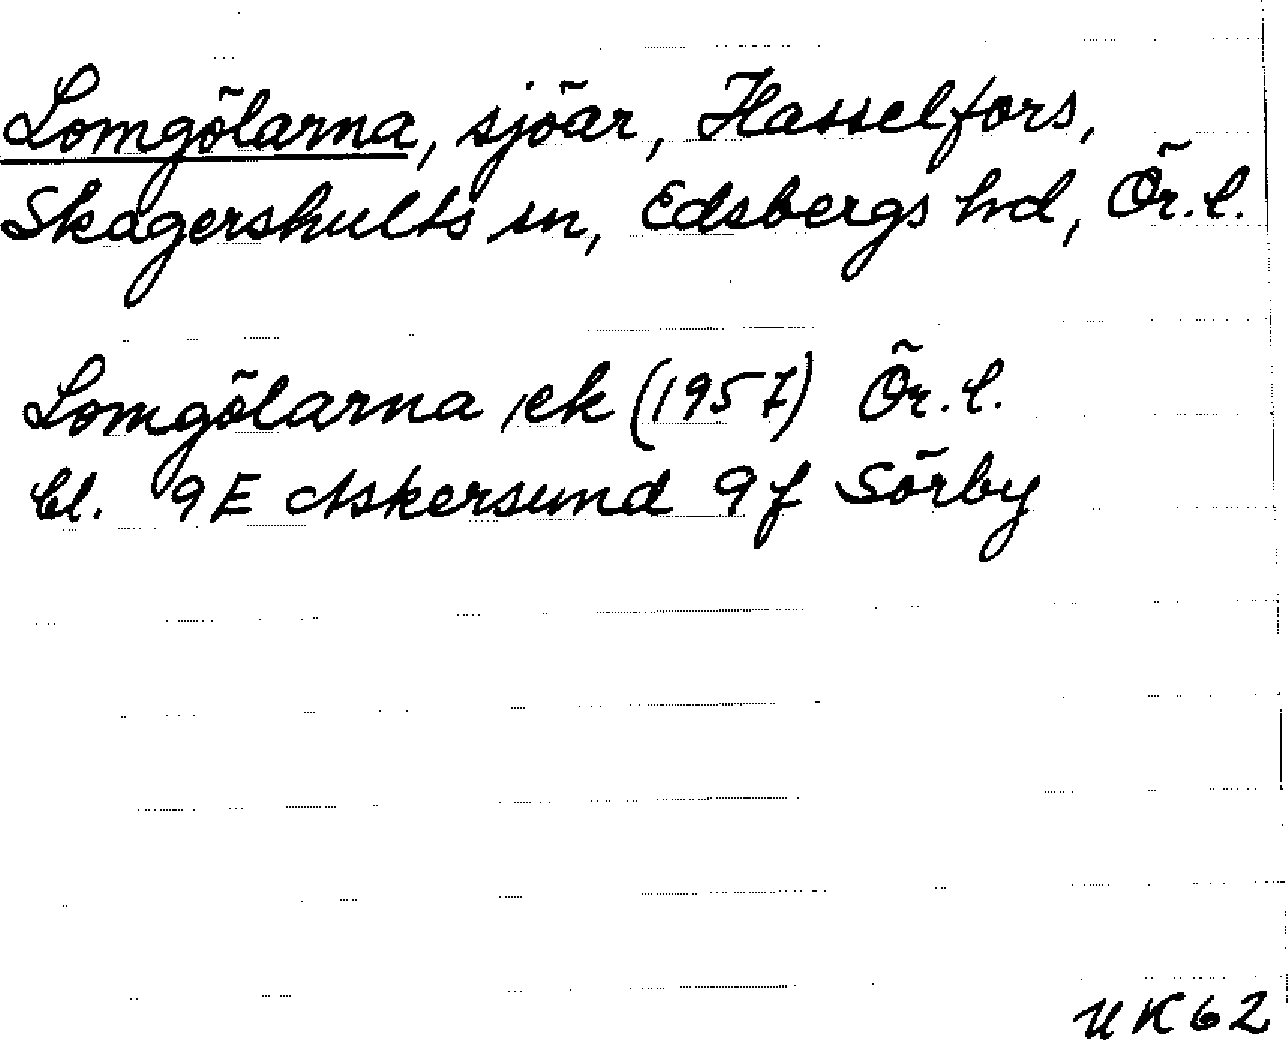 Lomgölarna, sjöar, Hasselfors,
Skagershults sn, Edsbergs hd, Ör. l.
Lomgölarna, ek (1957) Ör. l.
bl. 9E Askersund 9f Sörby
UK62